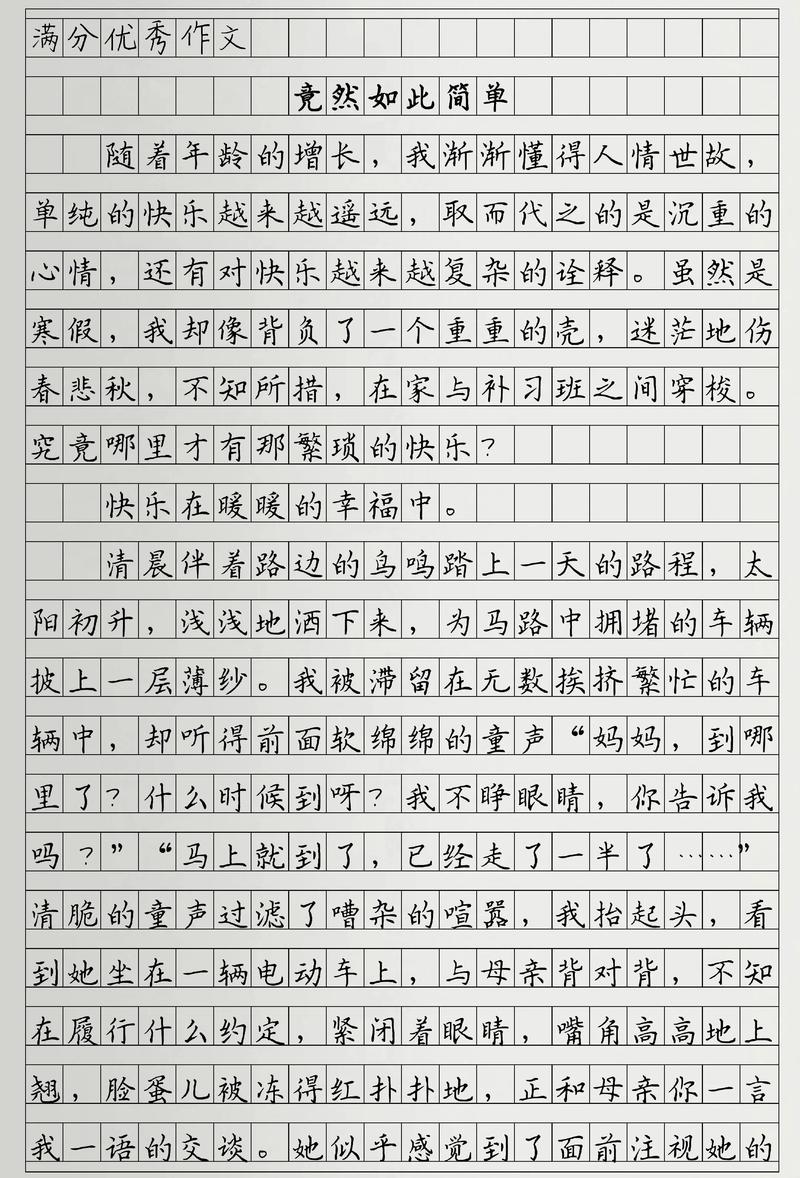 满分优秀作文
竟然如此简单
随着年龄的增长，我渐渐懂得人情世故，
单纯的快乐越来越遥远，取而代之的是沉重的
心情，还有对快乐越来越复杂的诠释。虽然是
寒假，我却像背负了一个重重的壳，迷茫地伤
春悲秋，不知所措，在家与补习班之间穿梭。
究竟哪里才有那繁琐的快乐？
快乐在暖暖的幸福中。
清晨伴着路边的鸟鸣踏上一天的路程，太
阳初升，浅浅地洒下来，为马路中拥堵的车辆
披上一层薄纱。我被滞留在无数挨挤繁忙的车
辆中，却听得前面软绵绵的童声“妈妈，到哪
里了？什么时候到呀？我不睁眼睛，你告诉我
吗？”“马上就到了，已经走了一半了……”
清脆的童声过滤了嘈杂的喧嚣，我抬起头，看
到她坐在一辆电动车上，与母亲背对背，不知
在履行什么约定，紧闭着眼睛，嘴角高高地上
翘，脸蛋儿被冻得红扑扑地，正和母亲你一言
我一语的交谈。她似乎感觉到了面前注视她的